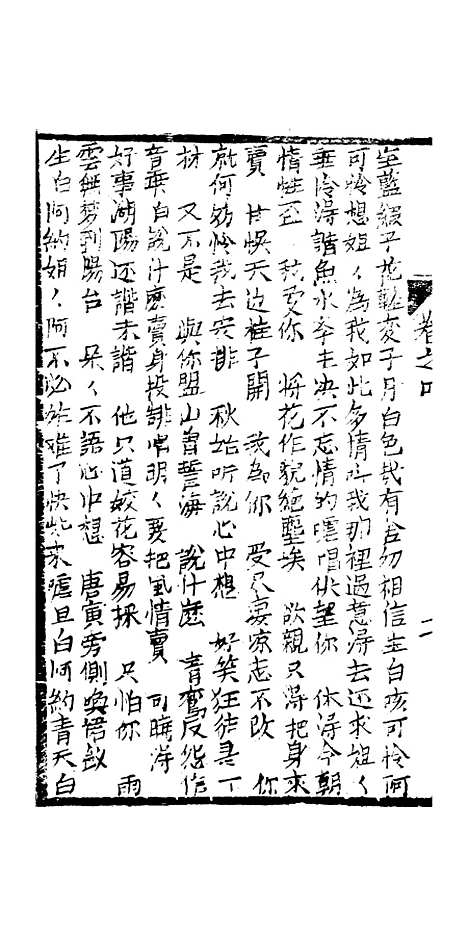 坐藍緞子花鞋变子月白色我有合勿相信生白咳可怜阿
可怜想姐〻為我如此多情叫我那裡過意得去还求姐〻
垂怜得諧魚水奉主决不忘情的嘘唱伏望你 休得今朝
情性歪 我爱你 将花作貌絶塵埃 欲親只得把身來
賣 甘悞天边桂子開 我為你 受尽淒凉志不改 你
就何妨怜我去安排 秋姑听說心中想 好笑狂徒書丁
材 又不是 與你盟山曾誓海 說什庅 青鸞反怨信
音乖白說什麽賣身投 唱明〻要把風情賣 可曉得
好事湖陽还諧未諧 他只道姣花容易採 只怕你 雨
雲無夢到陽台 呆〻不語心中想 唐寅旁側喚裙釵
生白阿約姐〻阿不必姓难了快些來嘘旦白阿約青天白
卷之四
二